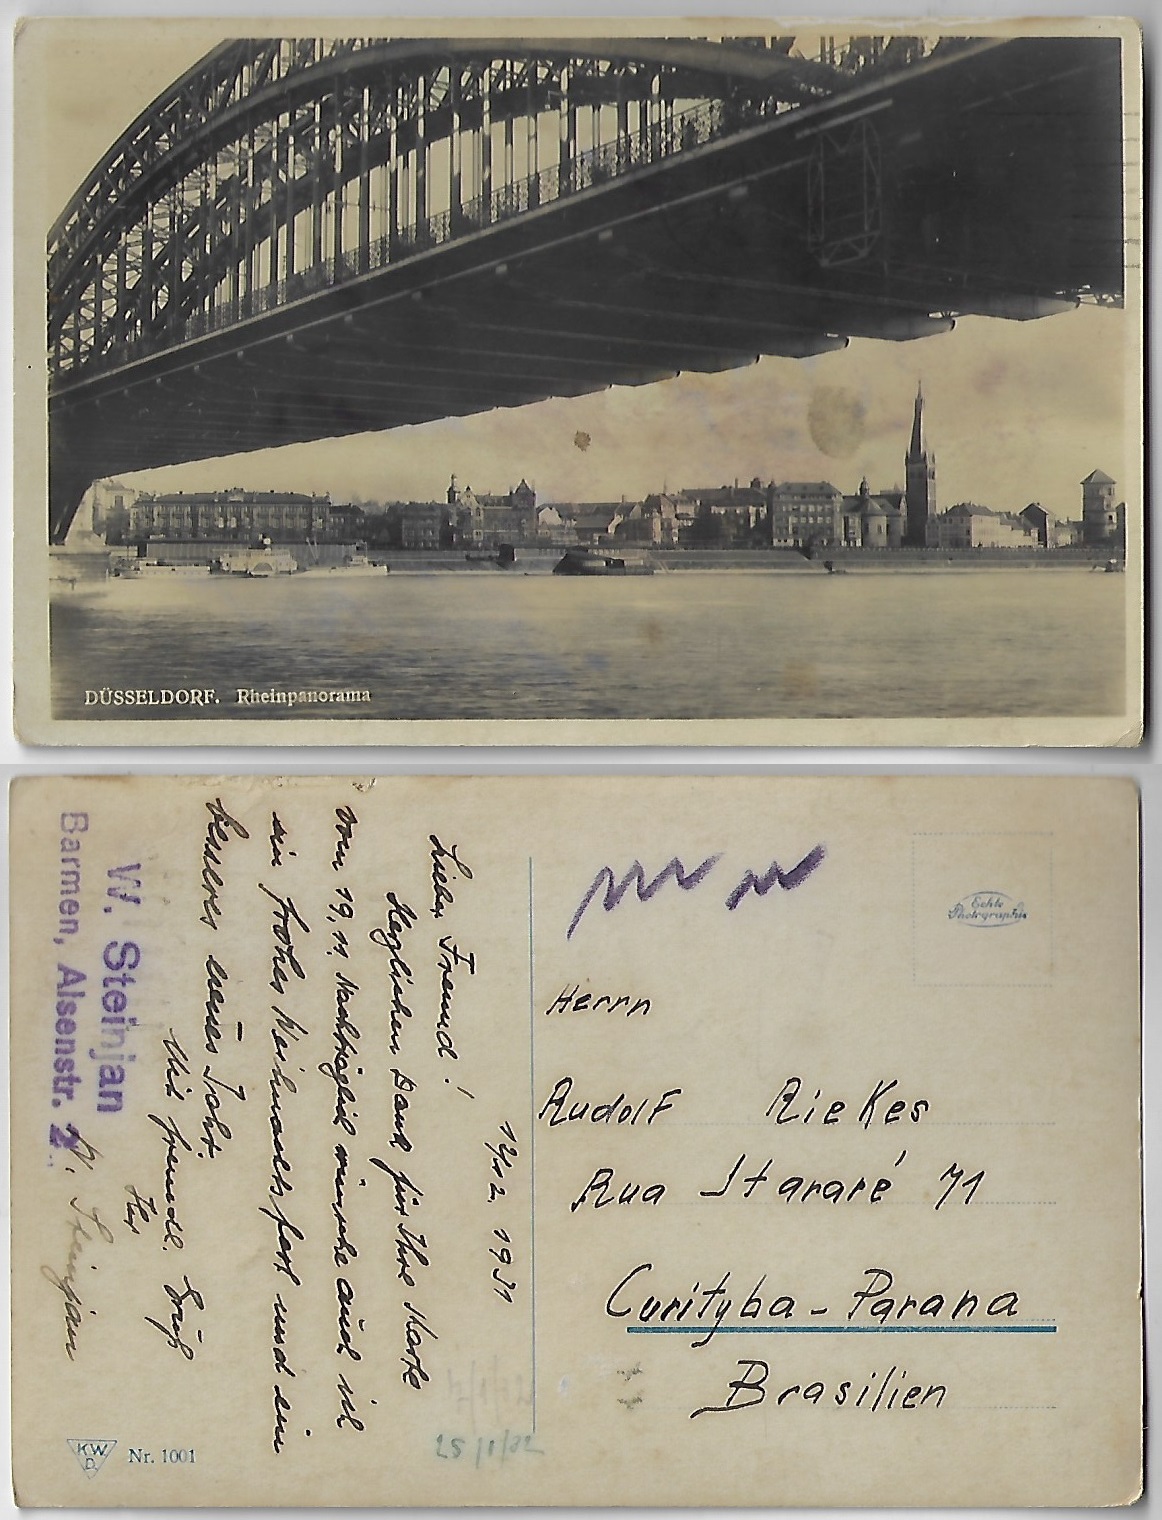 DÜSSELDORF. Rheinpanorama
12/12. 1931
Lieber Freund!
Herzlichen Dank für Ihre Karte
vom 19.11. Nachträglich wünsche auch ich
ein frohes Weihnachtsfest und ein
besseres neues Jahr.
Mit freundl. Gruß
Ihr
W. Steinjan
W. Steinjan
Barmen, Alsenstr. 2
Echte
Photographie
Herrn
Rudolf Riekes
Rua Itararé 71
Curityba - Parana
Brasilien
25/1/32
K.W.
D.
Nr. 1001